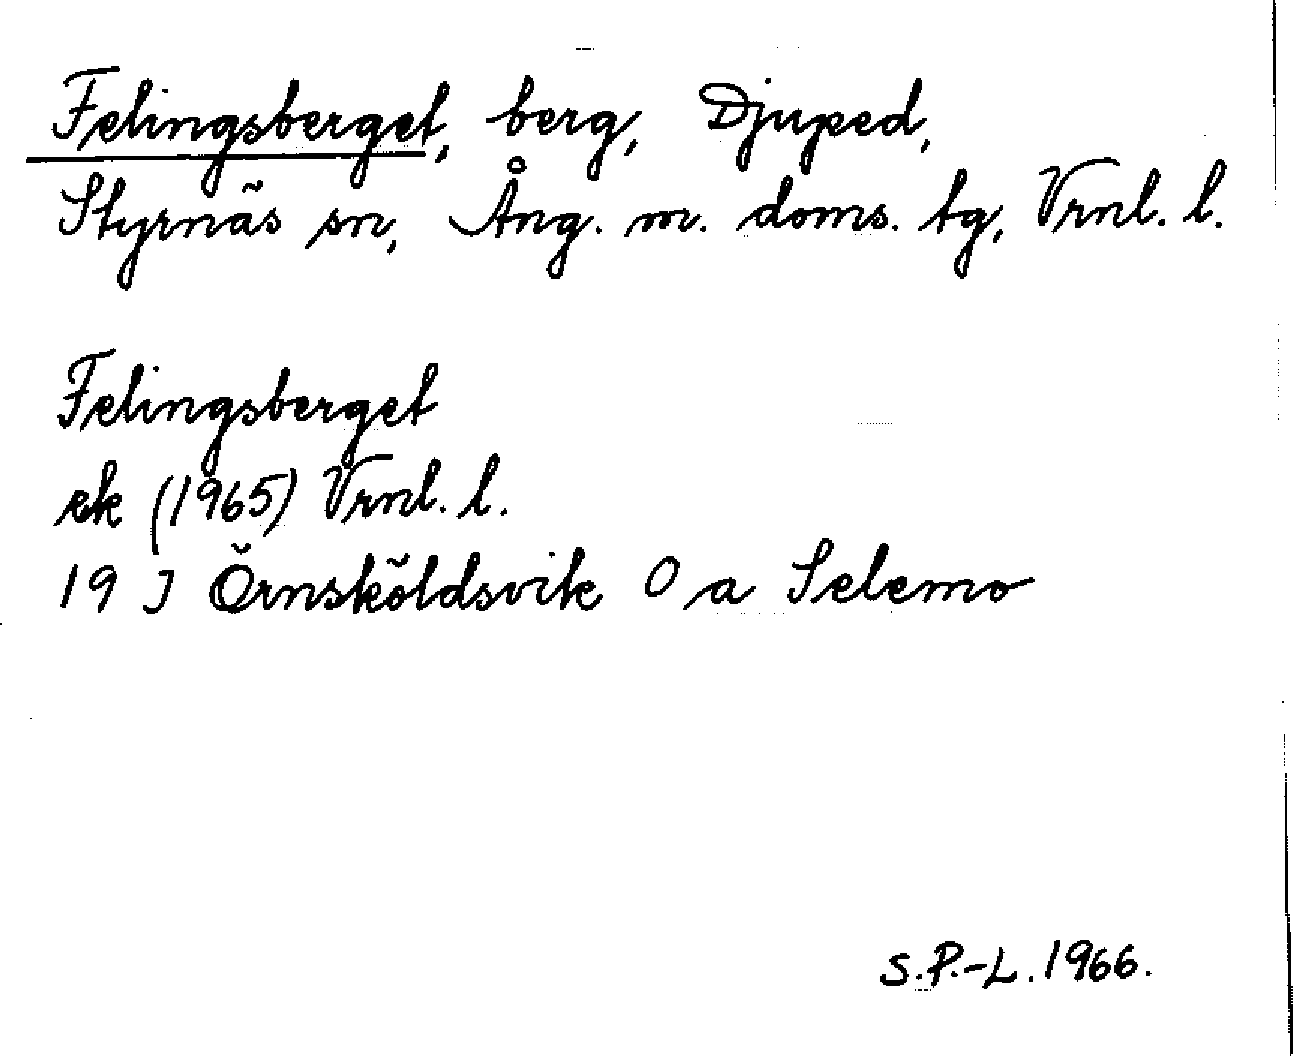 Felingsberget, berg, Djuped,
Styrnäs sn, Ång. m. doms. tg, Vrnl. l.
Felingsberget
ek (1965) Vrnl. l.
19 J Örnsköldsvik 0 a Selemo
S.P.-L. 1966.